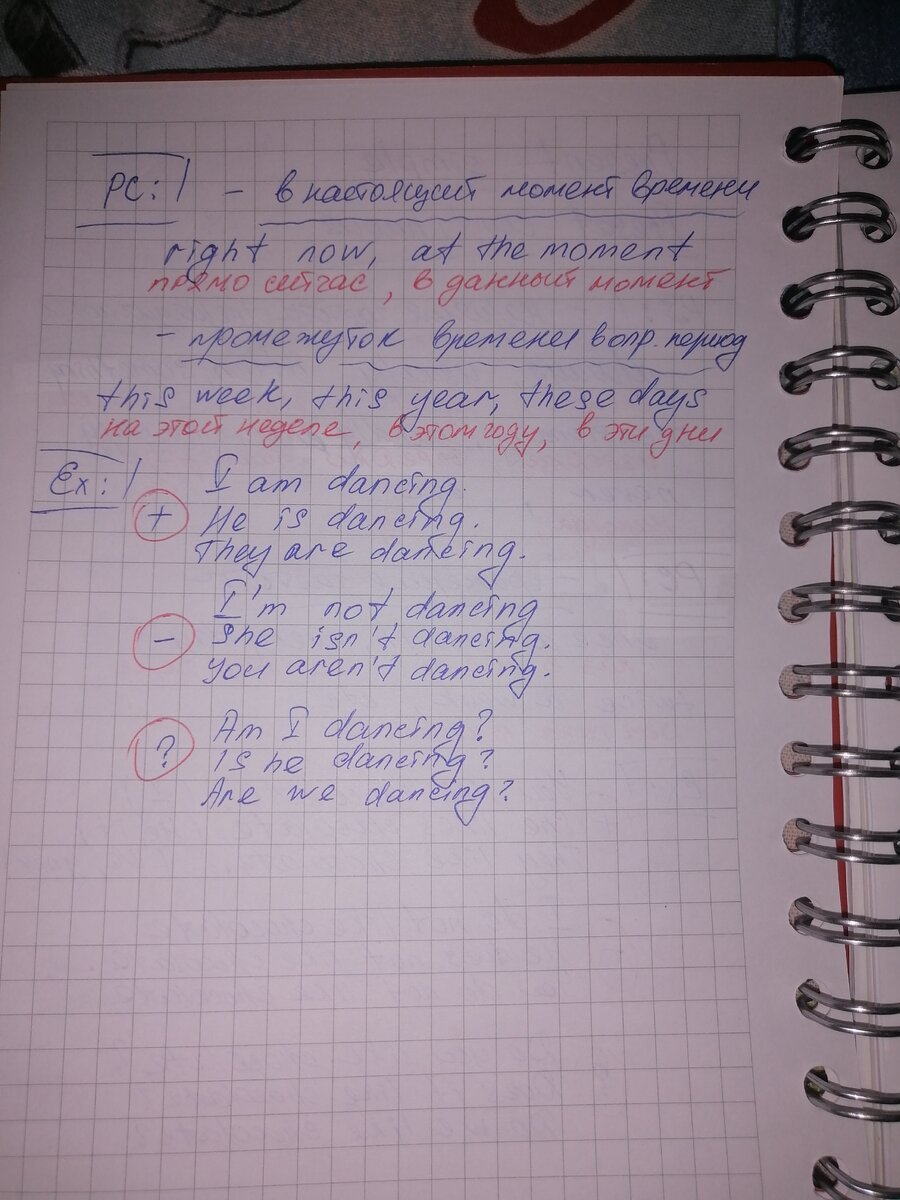 PC: - в настоящий момент времени
right now, at the moment
прямо сейчас, в данный момент
- промежуток времени в опр. период
this week, this year, these days
на этой неделе, в этом году, в эти дни
Ex: I am dancing.
+ He is dancing.
They are dancing.
I'm not dancing
- She isn't dancing.
You aren't dancing.
Am I dancing?
? Is he dancing?
Are we dancing?